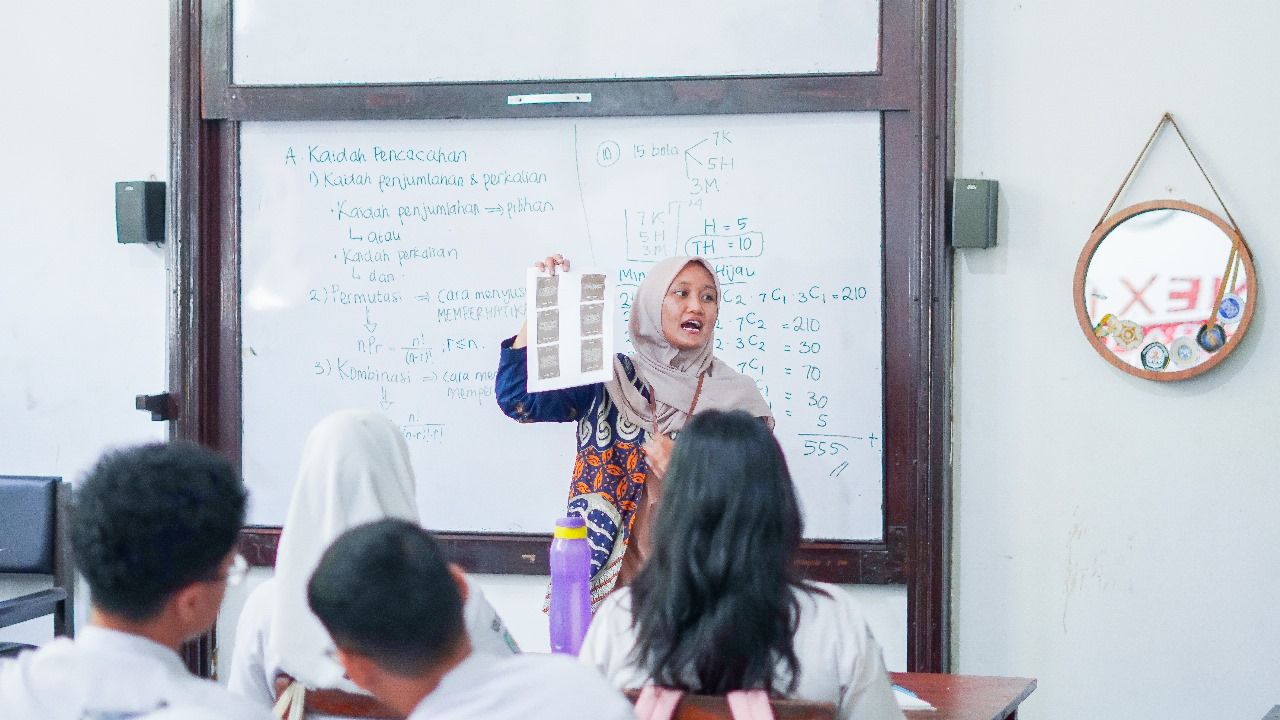 A. Kaidah Pencacahan
1) Kaidah penjumlahan & perkalian
· Kaidah penjumlahan ⇒ pilihan
↳ atau
· Kaidah perkalian
↳ dan
2) Permutasi ⇒ cara menyus
MEMPERHATIK
nPr = n! / (n-r)! , r ≤ n.
3) Kombinasi ⇒ cara me
mempe
n! / (n-r)! r!
10 15 bola
7K
5H
3M
7K
5H
3M
H = 5
TH = 10
Min Hijau
C2 · 7C1 · 3C1 = 210
· 7C2 = 210
· 3C2 = 30
7C1 = 70
= 30
= 5
+
555